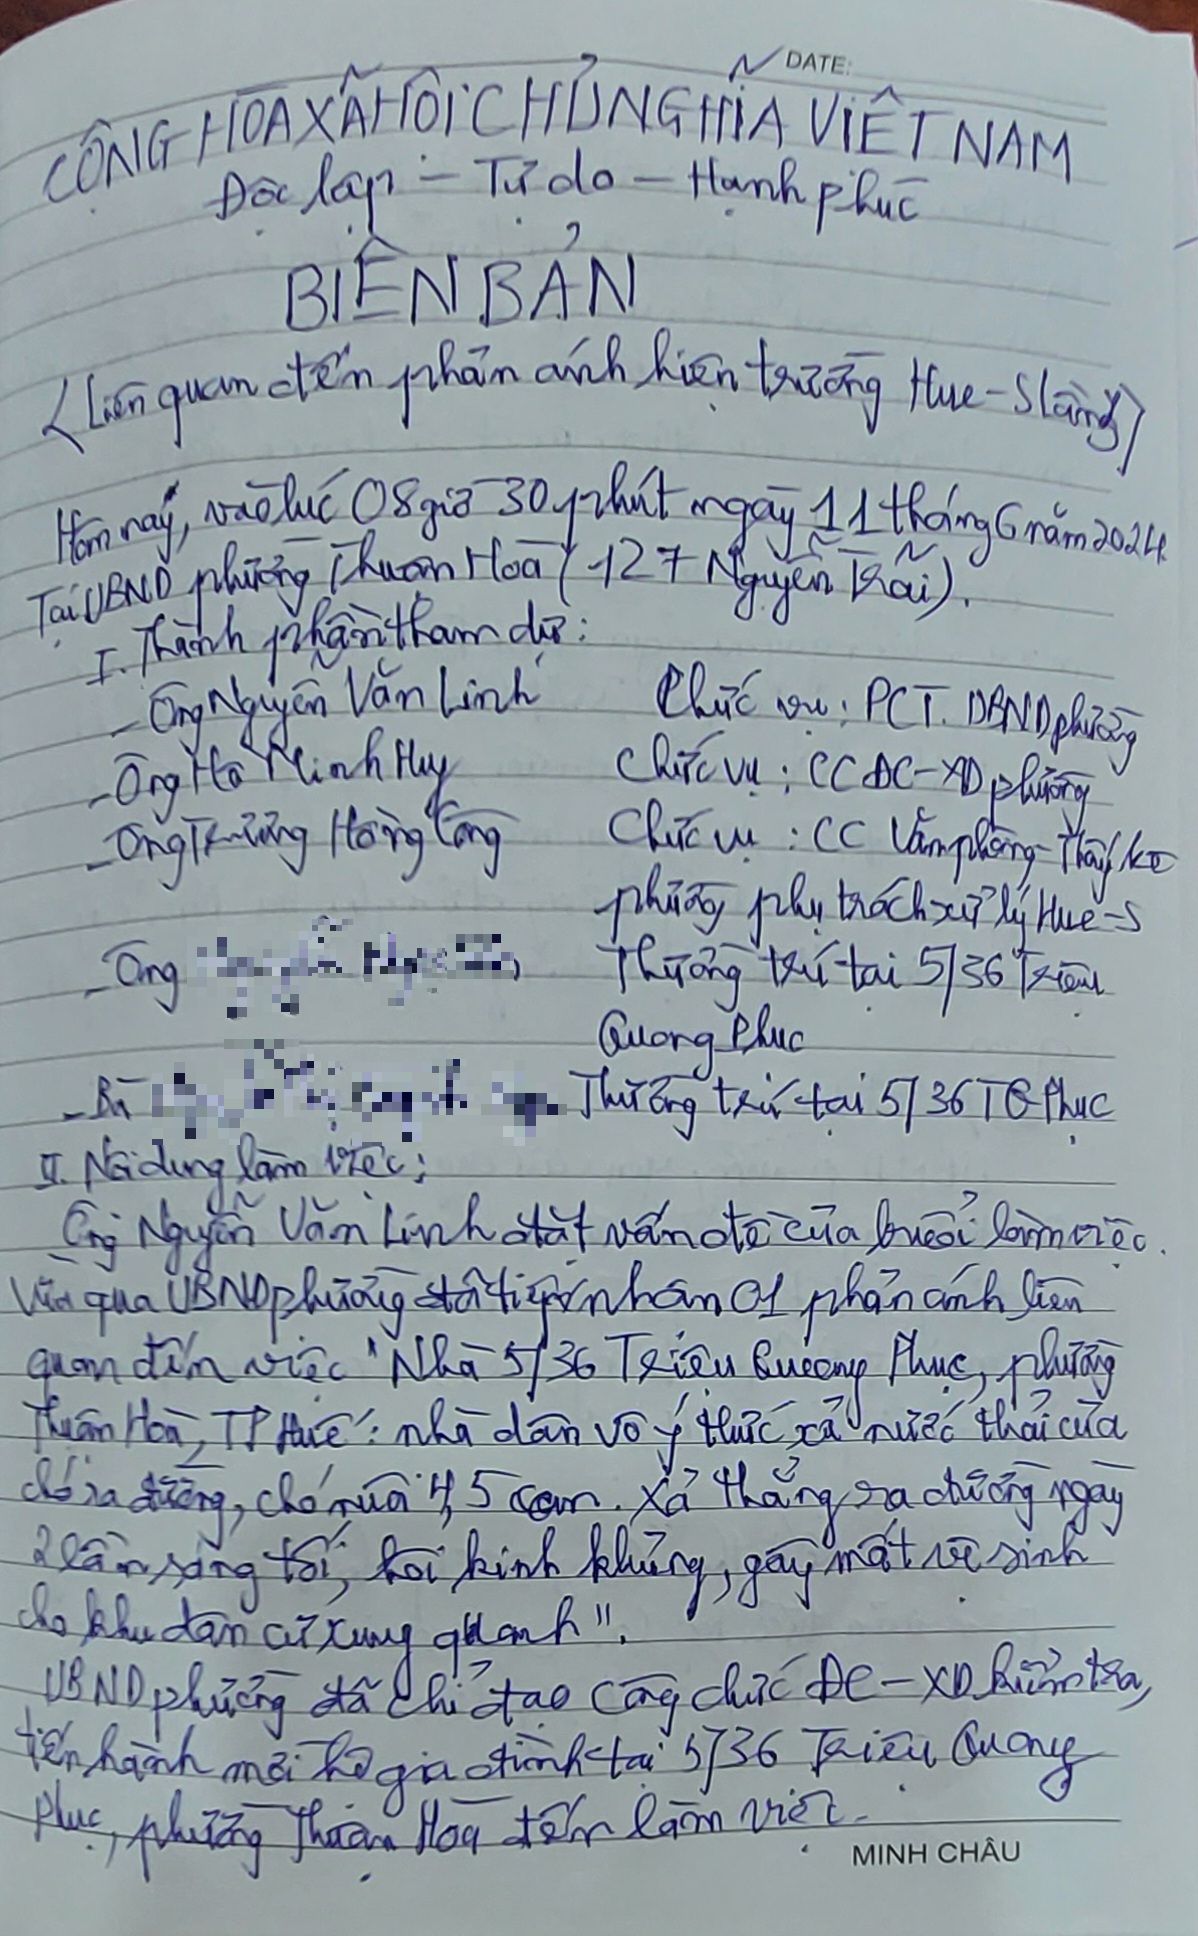 DATE:
CỘNG HÒA XÃ HỘI CHỦ NGHĨA VIỆT NAM
Độc lập - Tự do - Hạnh phúc
BIÊN BẢN
(Liên quan đến phản ánh hiện trường Hue-S
Hôm nay, vào lúc 08 giờ 30 phút ngày 11 tháng 6 năm 2024.
Tại UBND phường Thuận Hoà (127 Nguyễn Trãi).
I. Thành phần tham dự:
- Ông Nguyễn Văn Linh Chức vụ: PCT. UBND phường
- Ông Hồ Minh Huy Chức vụ: CC ĐC-XD phường
- Ông Trương Hoàng Công Chức vụ: CC Văn phòng - Thống kê
phường phụ trách xử lý Hue-S
- Ông Thường trú tại 5/36 Triệu
Quang Phục
- Bà Thường trú tại 5/36 TQ Phục
II. Nội dung làm việc:
Ông Nguyễn Văn Linh đặt vấn đề của buổi làm việc.
Vừa qua UBND phường đã tiếp nhận 01 phản ánh liên
quan đến việc "Nhà 5/36 Triệu Quang Phục, phường
Thuận Hoà, TP Huế: nhà dân vô ý thức xả nước thải của
chó ra đường, chó nuôi 4,5 con. Xả thẳng ra đường ngày
2 lần sáng tối, hôi kinh khủng, gây mất vệ sinh
cho khu dân cư xung quanh".
UBND phường đã chỉ đạo công chức ĐC-XD kiểm tra,
tiến hành mời hộ gia đình tại 5/36 Triệu Quang
Phục, phường Thuận Hoà đến làm việc.
MINH CHÂU